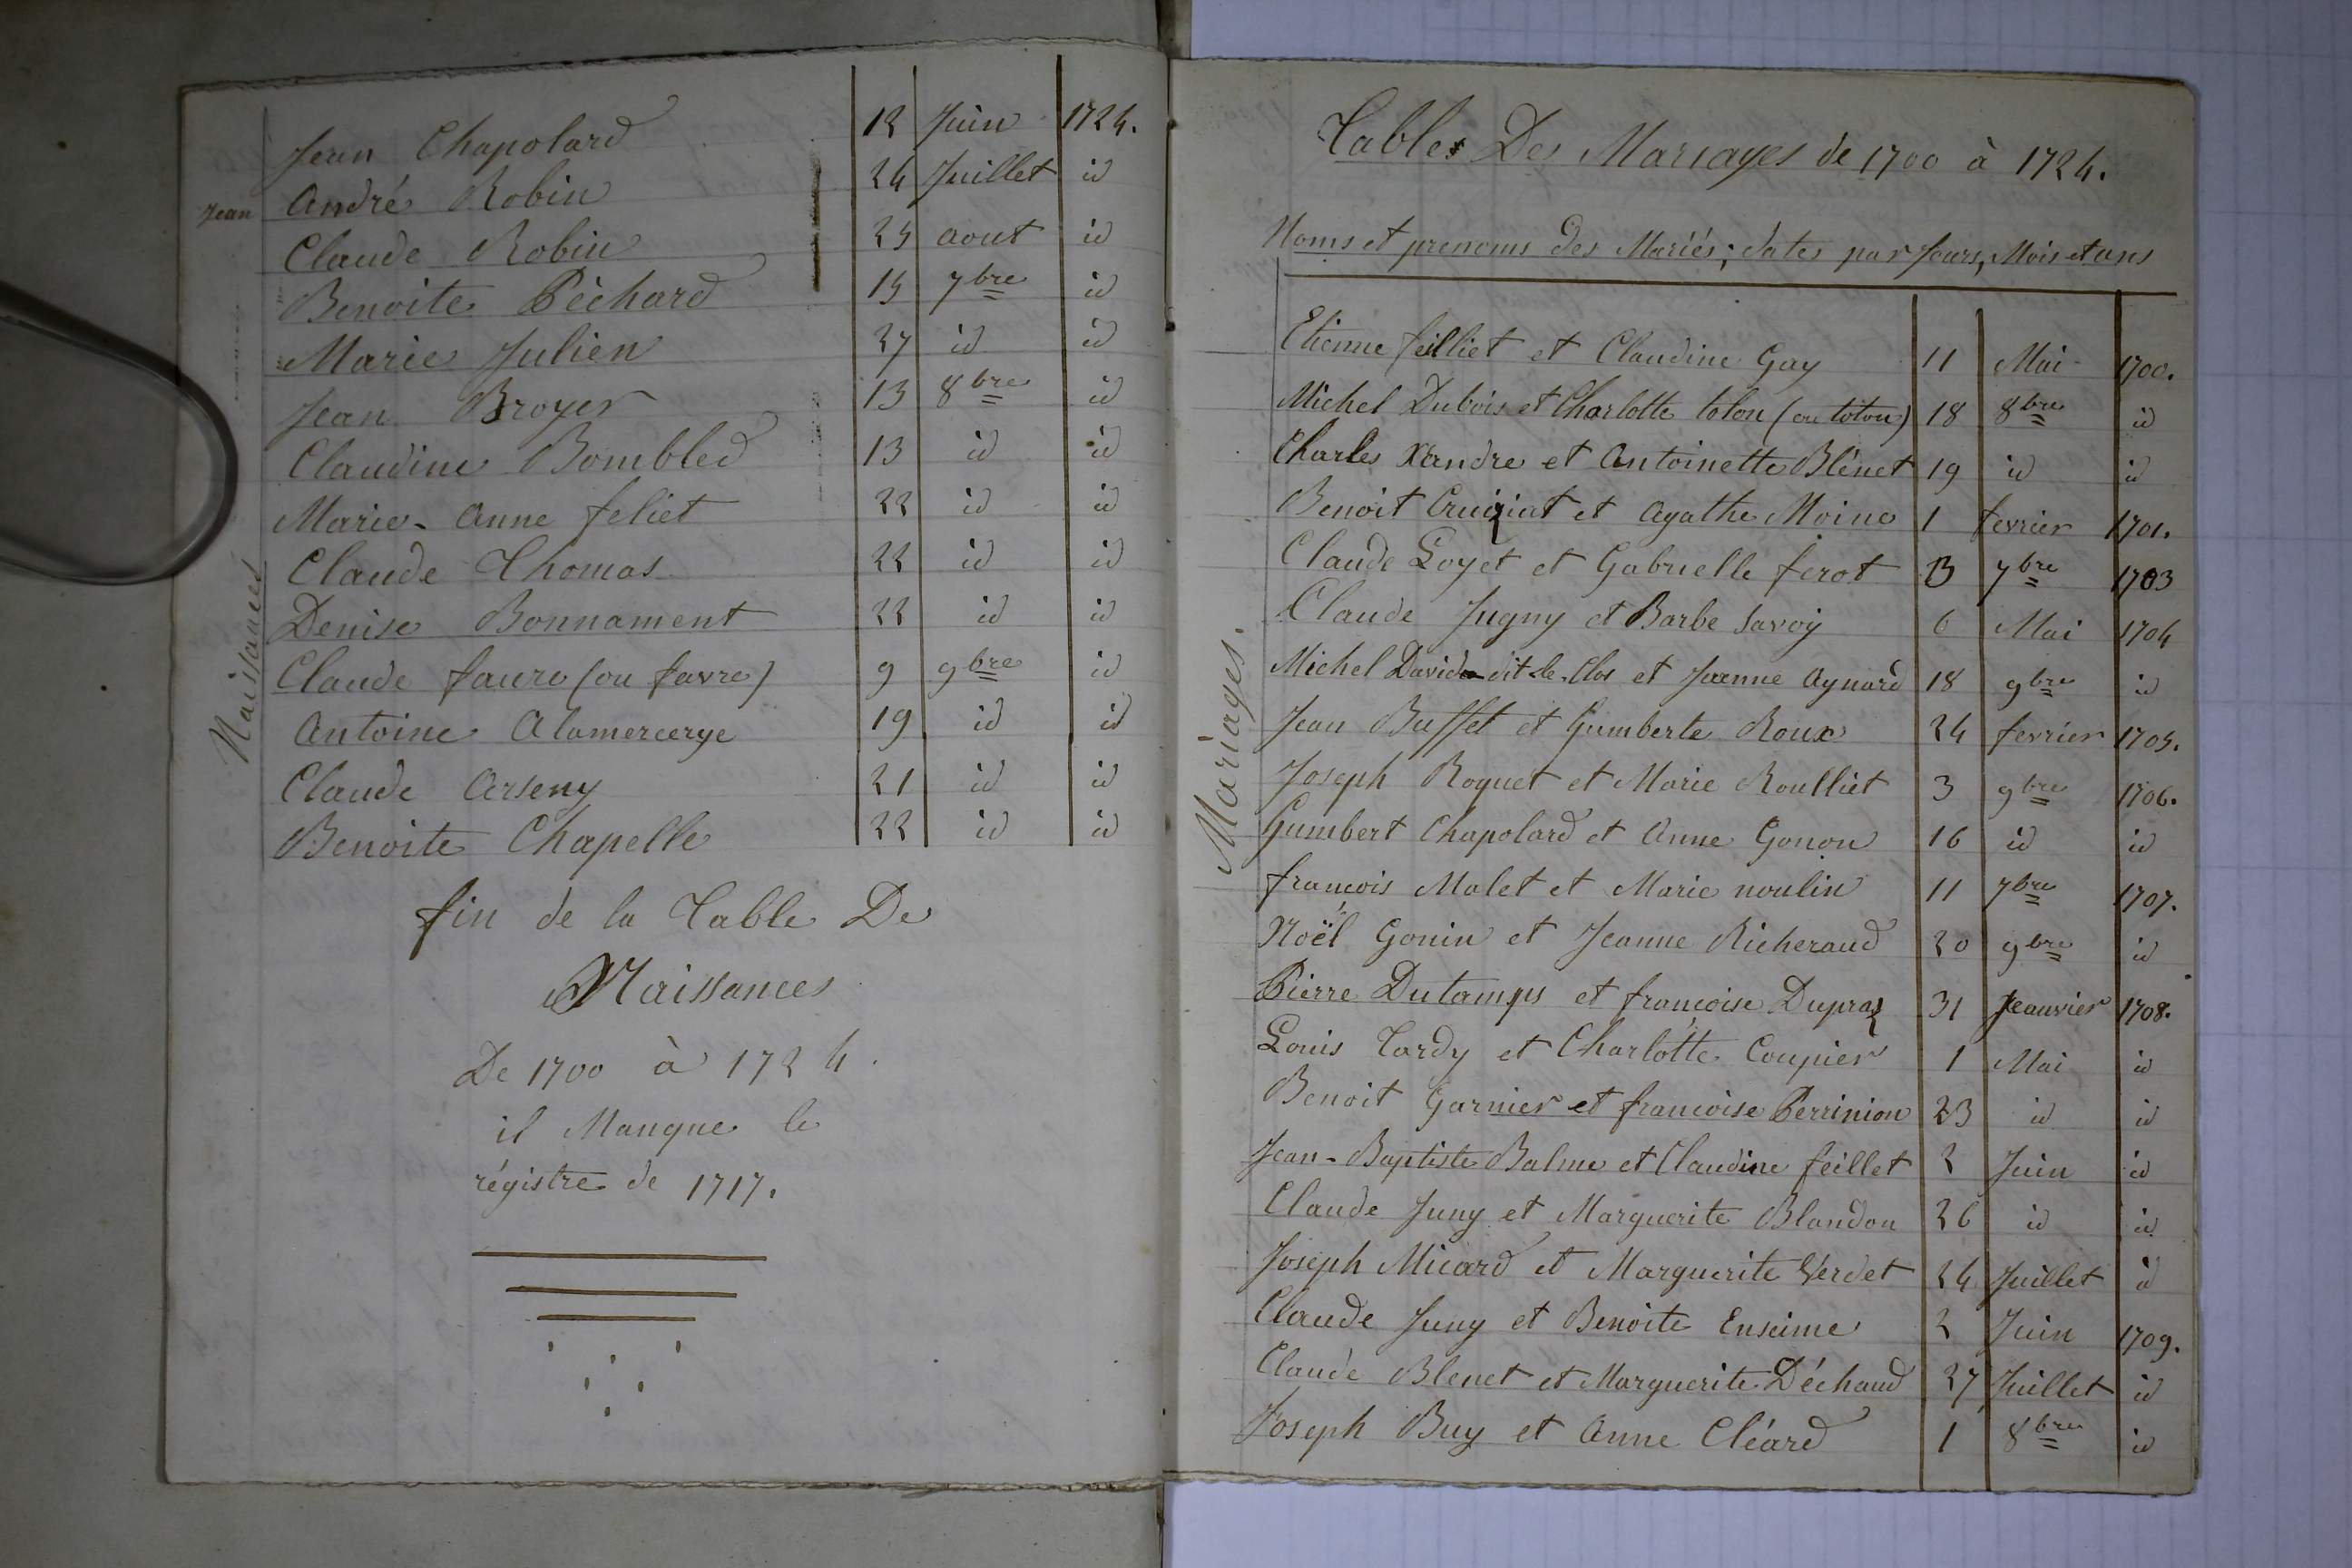 Jean Chapolard 12 Juin 1724.
Jean André Robin 24 Juillet id
Claude Robin 25 aout id
Benoite Péchard 15 7bre id
Marie Julien 27 id id
Jean Broyer 13 8bre id
Claudine Bombled 13 id id
Marie-Anne feliet 22 id id
Claude Thomas 22 id id
Denise Bonnament 22 id id
Claude faure (ou favre) 9 9bre id
Antoine Alamercerye 19 id id
Claude Arseny 21 id id
Benoite Chapelle 22 id id
Naissances
fin de la Table De
Naissances
De 1700 à 1724.
il Manque le
régistre de 1717.
Tables Des Mariages de 1700 à 1724.
Noms et prenoms des Mariés; dates par Jours, Mois et ans
Mariages.
Etienne feilliet et Claudine Gay 11 Mai 1700.
Michel Dubois et Charlotte tolon (ou toton) 18 8bre id
Charles Xandre et Antoinette Blénet 19 id id
Benoit Cruiziat et Agathe Moine 1 fevrier 1701.
Claude Loyet et Gabrielle ferot 13 7bre 1703
Claude Jugny et Barbe Savoy 6 Mai 1704
Michel David dit le Clos et Jeanne Aynard 18 9bre id
Jean Buffet et Gumberte Roux 24 fevrier 1705.
Joseph Roguet et Marie Roulliet 3 9bre 1706.
Gumbert Chapolard et Anne Gonon 16 id id
françois Malet et Marie noulin 11 7bre 1707.
Noël Gonin et Jeanne Richeraud 20 9bre id
Pierre Dutamps et françoise Dupraz 31 Jeanvier 1708.
Louis Tardy et Charlotte Coupier 1 Mai id
Benoit Garnier et françoise Perrinion 23 id id
Jean-Baptiste Balme et Claudine feillet 2 Juin id
Claude Juny et Marguerite Blandon 26 id id
Joseph Micard et Marguerite Verdet 24 Juillet id
Claude Juny et Benoite Enseime 2 Juin 1709.
Claude Blenet et Marguerite Déchaud 27 Juillet id
Joseph Buy et Anne Cléard 1 8bre id